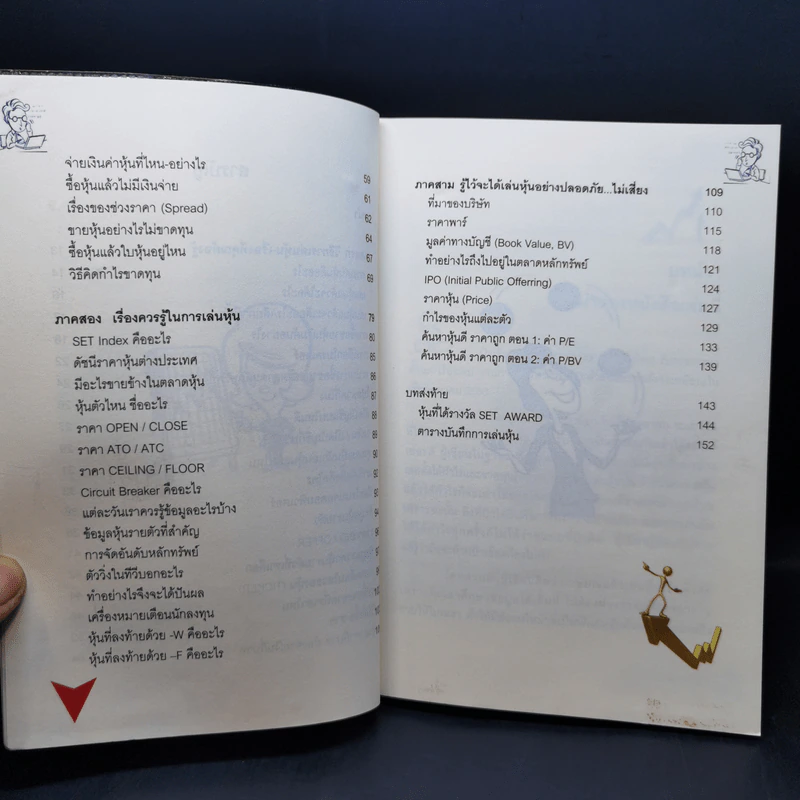 จ่ายเงินค่าหุ้นที่ไหน-อย่างไร 59
ซื้อหุ้นแล้วไม่มีเงินจ่าย 61
เรื่องของช่วงราคา (Spread) 62
ขายหุ้นอย่างไรไม่ขาดทุน 64
ซื้อหุ้นแล้วใบหุ้นอยู่ไหน 67
วิธีคิดกำไรขาดทุน 69
ภาคสอง เรื่องควรรู้ในการเล่นหุ้น 79
SET Index คืออะไร 80
ดัชนีราคาหุ้นต่างประเทศ 85
มีอะไรขายข้างในตลาดหุ้น 86
หุ้นตัวไหน ชื่ออะไร 87
ราคา OPEN / CLOSE 88
ราคา ATO / ATC
ราคา CEILING / FLOOR
Circuit Breaker คืออะไร
แต่ละวันเราควรรู้ข้อมูลอะไรบ้าง
ข้อมูลหุ้นรายตัวที่สำคัญ
การจัดอันดับหลักทรัพย์
ตัววิ่งในทีวีบอกอะไร
ทำอย่างไรจึงจะได้ปันผล
เครื่องหมายเตือนนักลงทุน
หุ้นที่ลงท้ายด้วย -W คืออะไร
หุ้นที่ลงท้ายด้วย –F คืออะไร
ภาคสาม รู้ไว้จะได้เล่นหุ้นอย่างปลอดภัย...ไม่เสี่ยง 109
ที่มาของบริษัท 110
ราคาพาร์ 115
มูลค่าทางบัญชี (Book Value, BV) 118
ทำอย่างไรถึงไปอยู่ในตลาดหลักทรัพย์ 121
IPO (Initial Public Offerring) 124
ราคาหุ้น (Price) 127
กำไรของหุ้นแต่ละตัว 129
ค้นหาหุ้นดี ราคาถูก ตอน 1: ค่า P/E 133
ค้นหาหุ้นดี ราคาถูก ตอน 2: ค่า P/BV 139
บทส่งท้าย 143
หุ้นที่ได้รางวัล SET AWARD 144
ตารางบันทึกการเล่นหุ้น 152